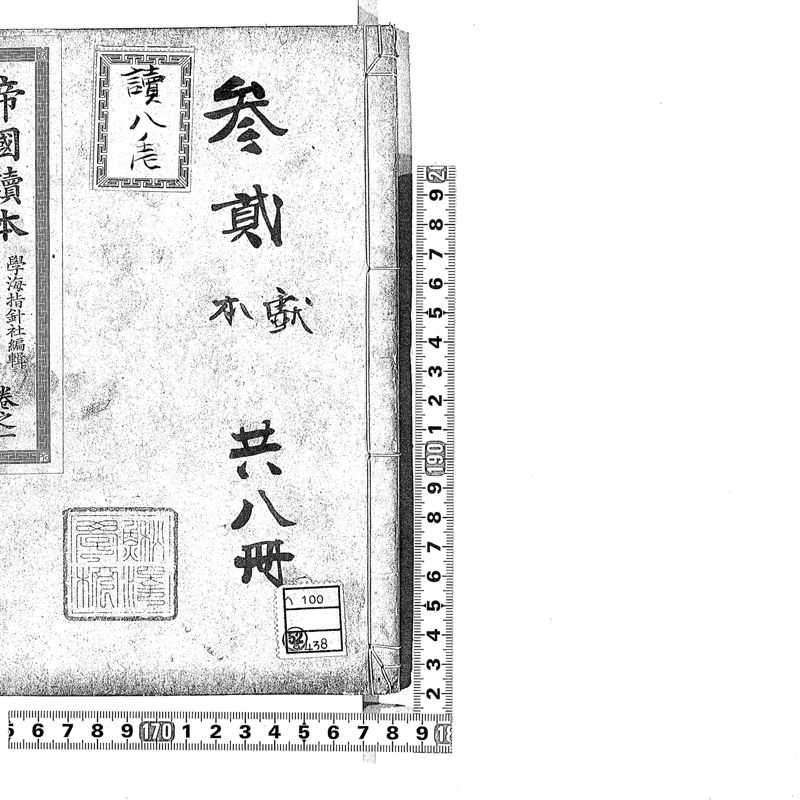 叁貳
獻本
共八冊
讀八
帝國讀本
學海指針社編輯
卷之一
100
438
9 8 7 6 5 4 3 2 1 190 9 8 7 6 5 4 3 2
6 7 8 9 170 1 2 3 4 5 6 7 8 9